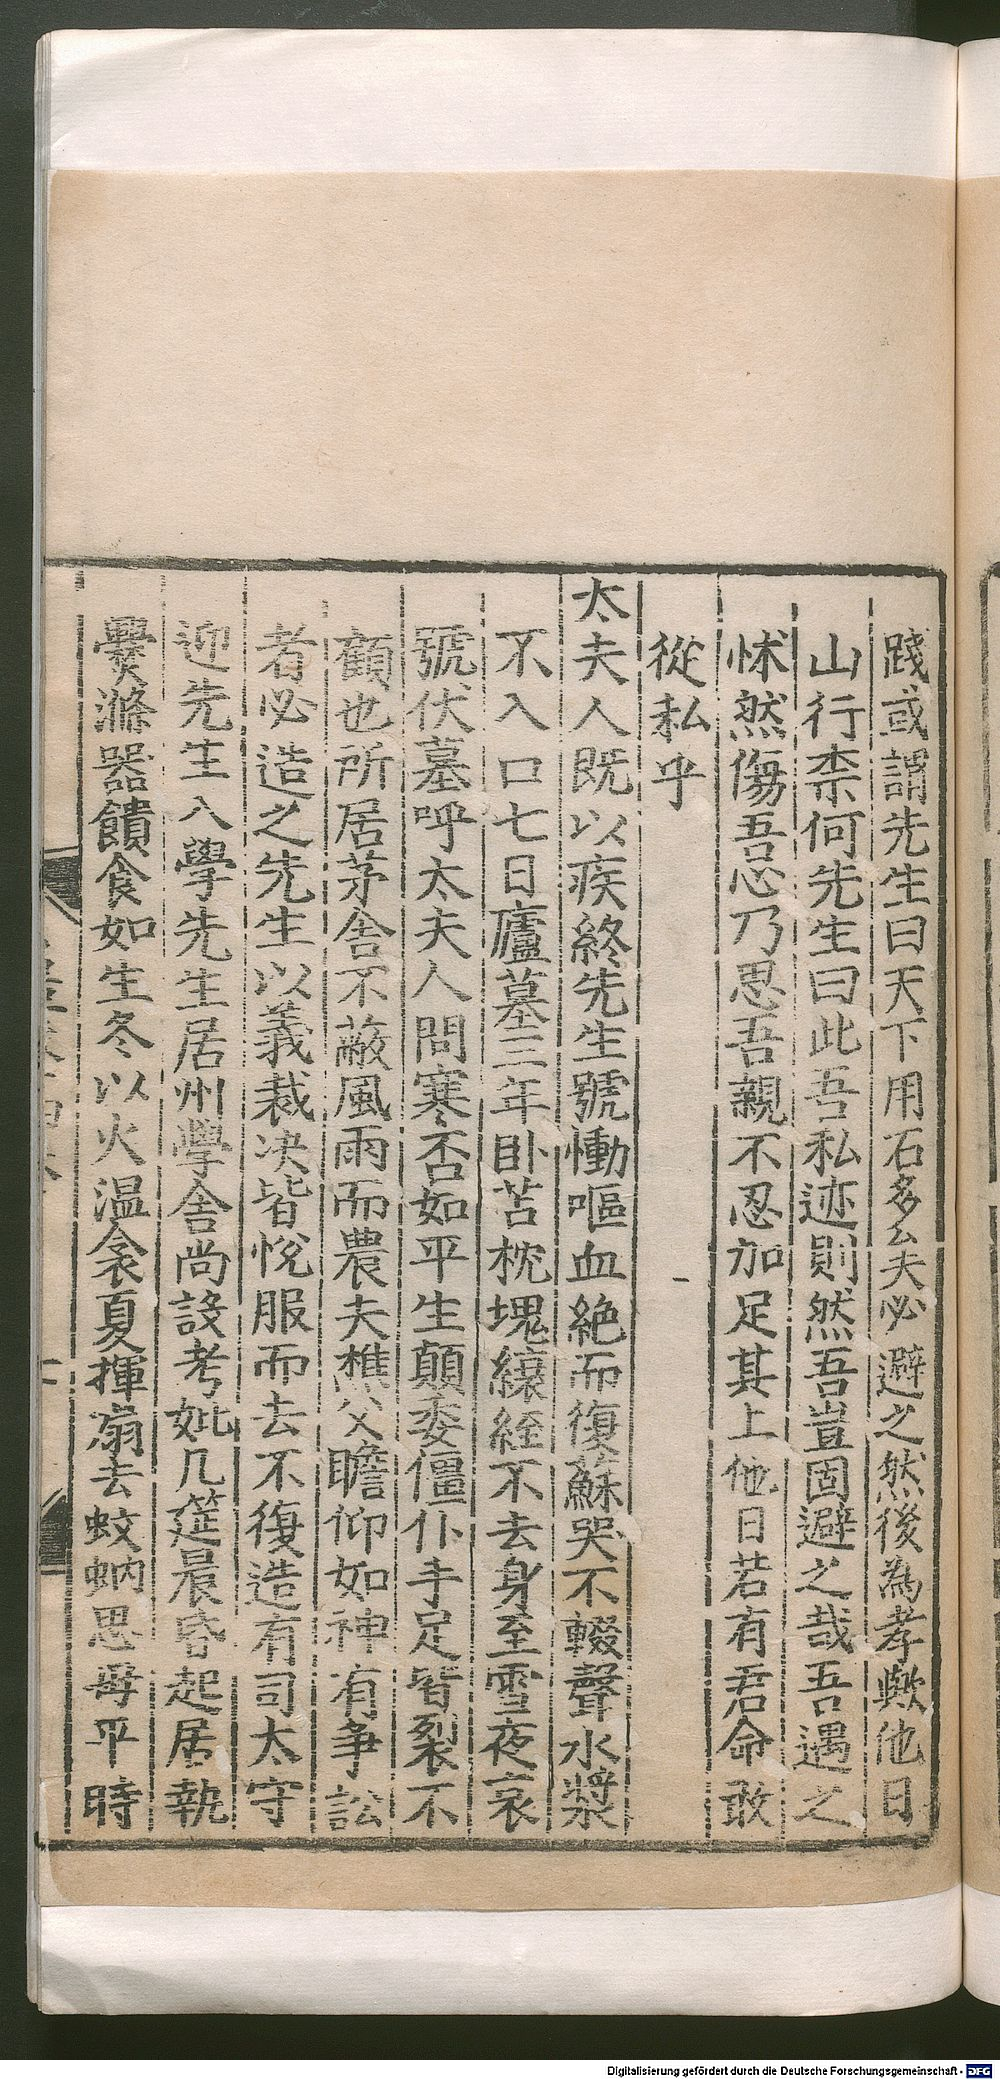 踐或謂先生曰天下用石多矣必避之然後為孝歟他日
山行柰何先生曰此吾私迹則然吾豈固避之哉吾遇之
怵然傷吾心乃思吾親不忍加足其上他日若有君命敢
從私乎
太夫人既以疾終先生號慟嘔血絶而復蘇哭不輟聲水漿
不入口七日廬墓三年卧苫枕塊縗絰不去身至雪夜哀
號伏墓呼太夫人問寒否如平生顛委僵仆手足皆裂不
顧也所居茅舍不蔽風雨而農夫樵父瞻仰如神有争訟
者必造之先生以義裁决皆悅服而去不復造有司太守
迎先生入學先生居州學舍尚設考妣几筵晨昏起居執
爨滌器饋食如生冬以火温衾夏揮扇去蚊蚋思毋平時
Digitalisierung gefördert durch die Deutsche Forschungsgemeinschaft - DFG